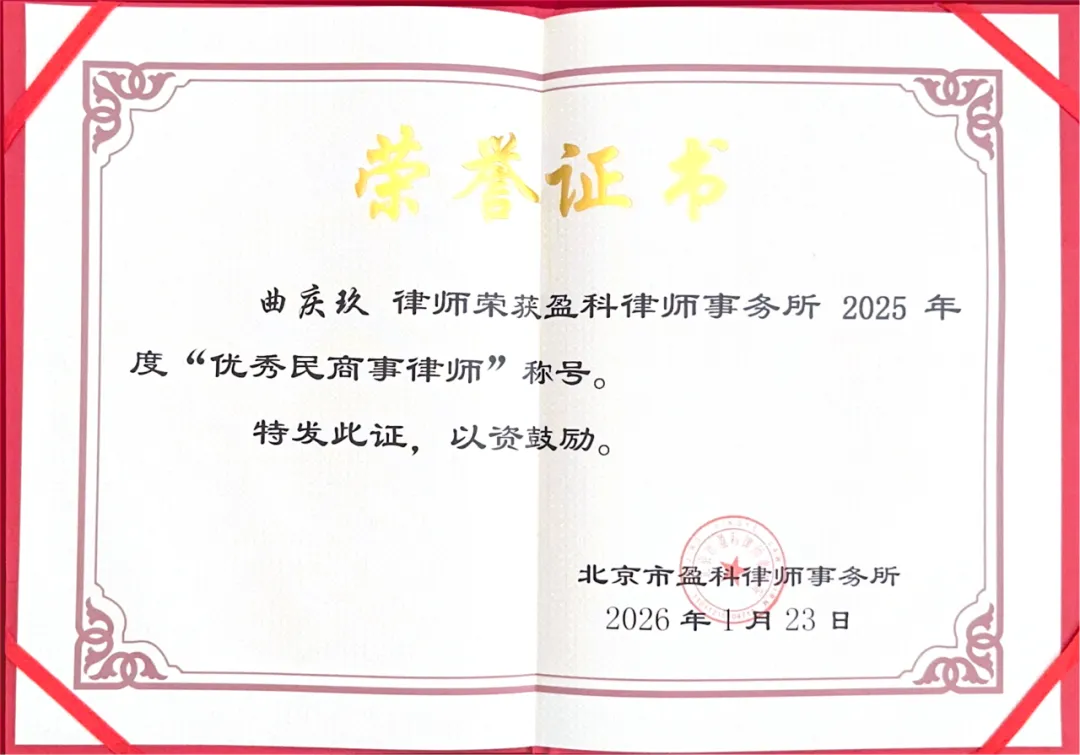 荣誉证书
曲庆玖 律师荣获盈科律师事务所 2025 年
度“优秀民商事律师”称号。
特发此证，以资鼓励。
北京市盈科律师事务所
2026 年 1 月 23 日